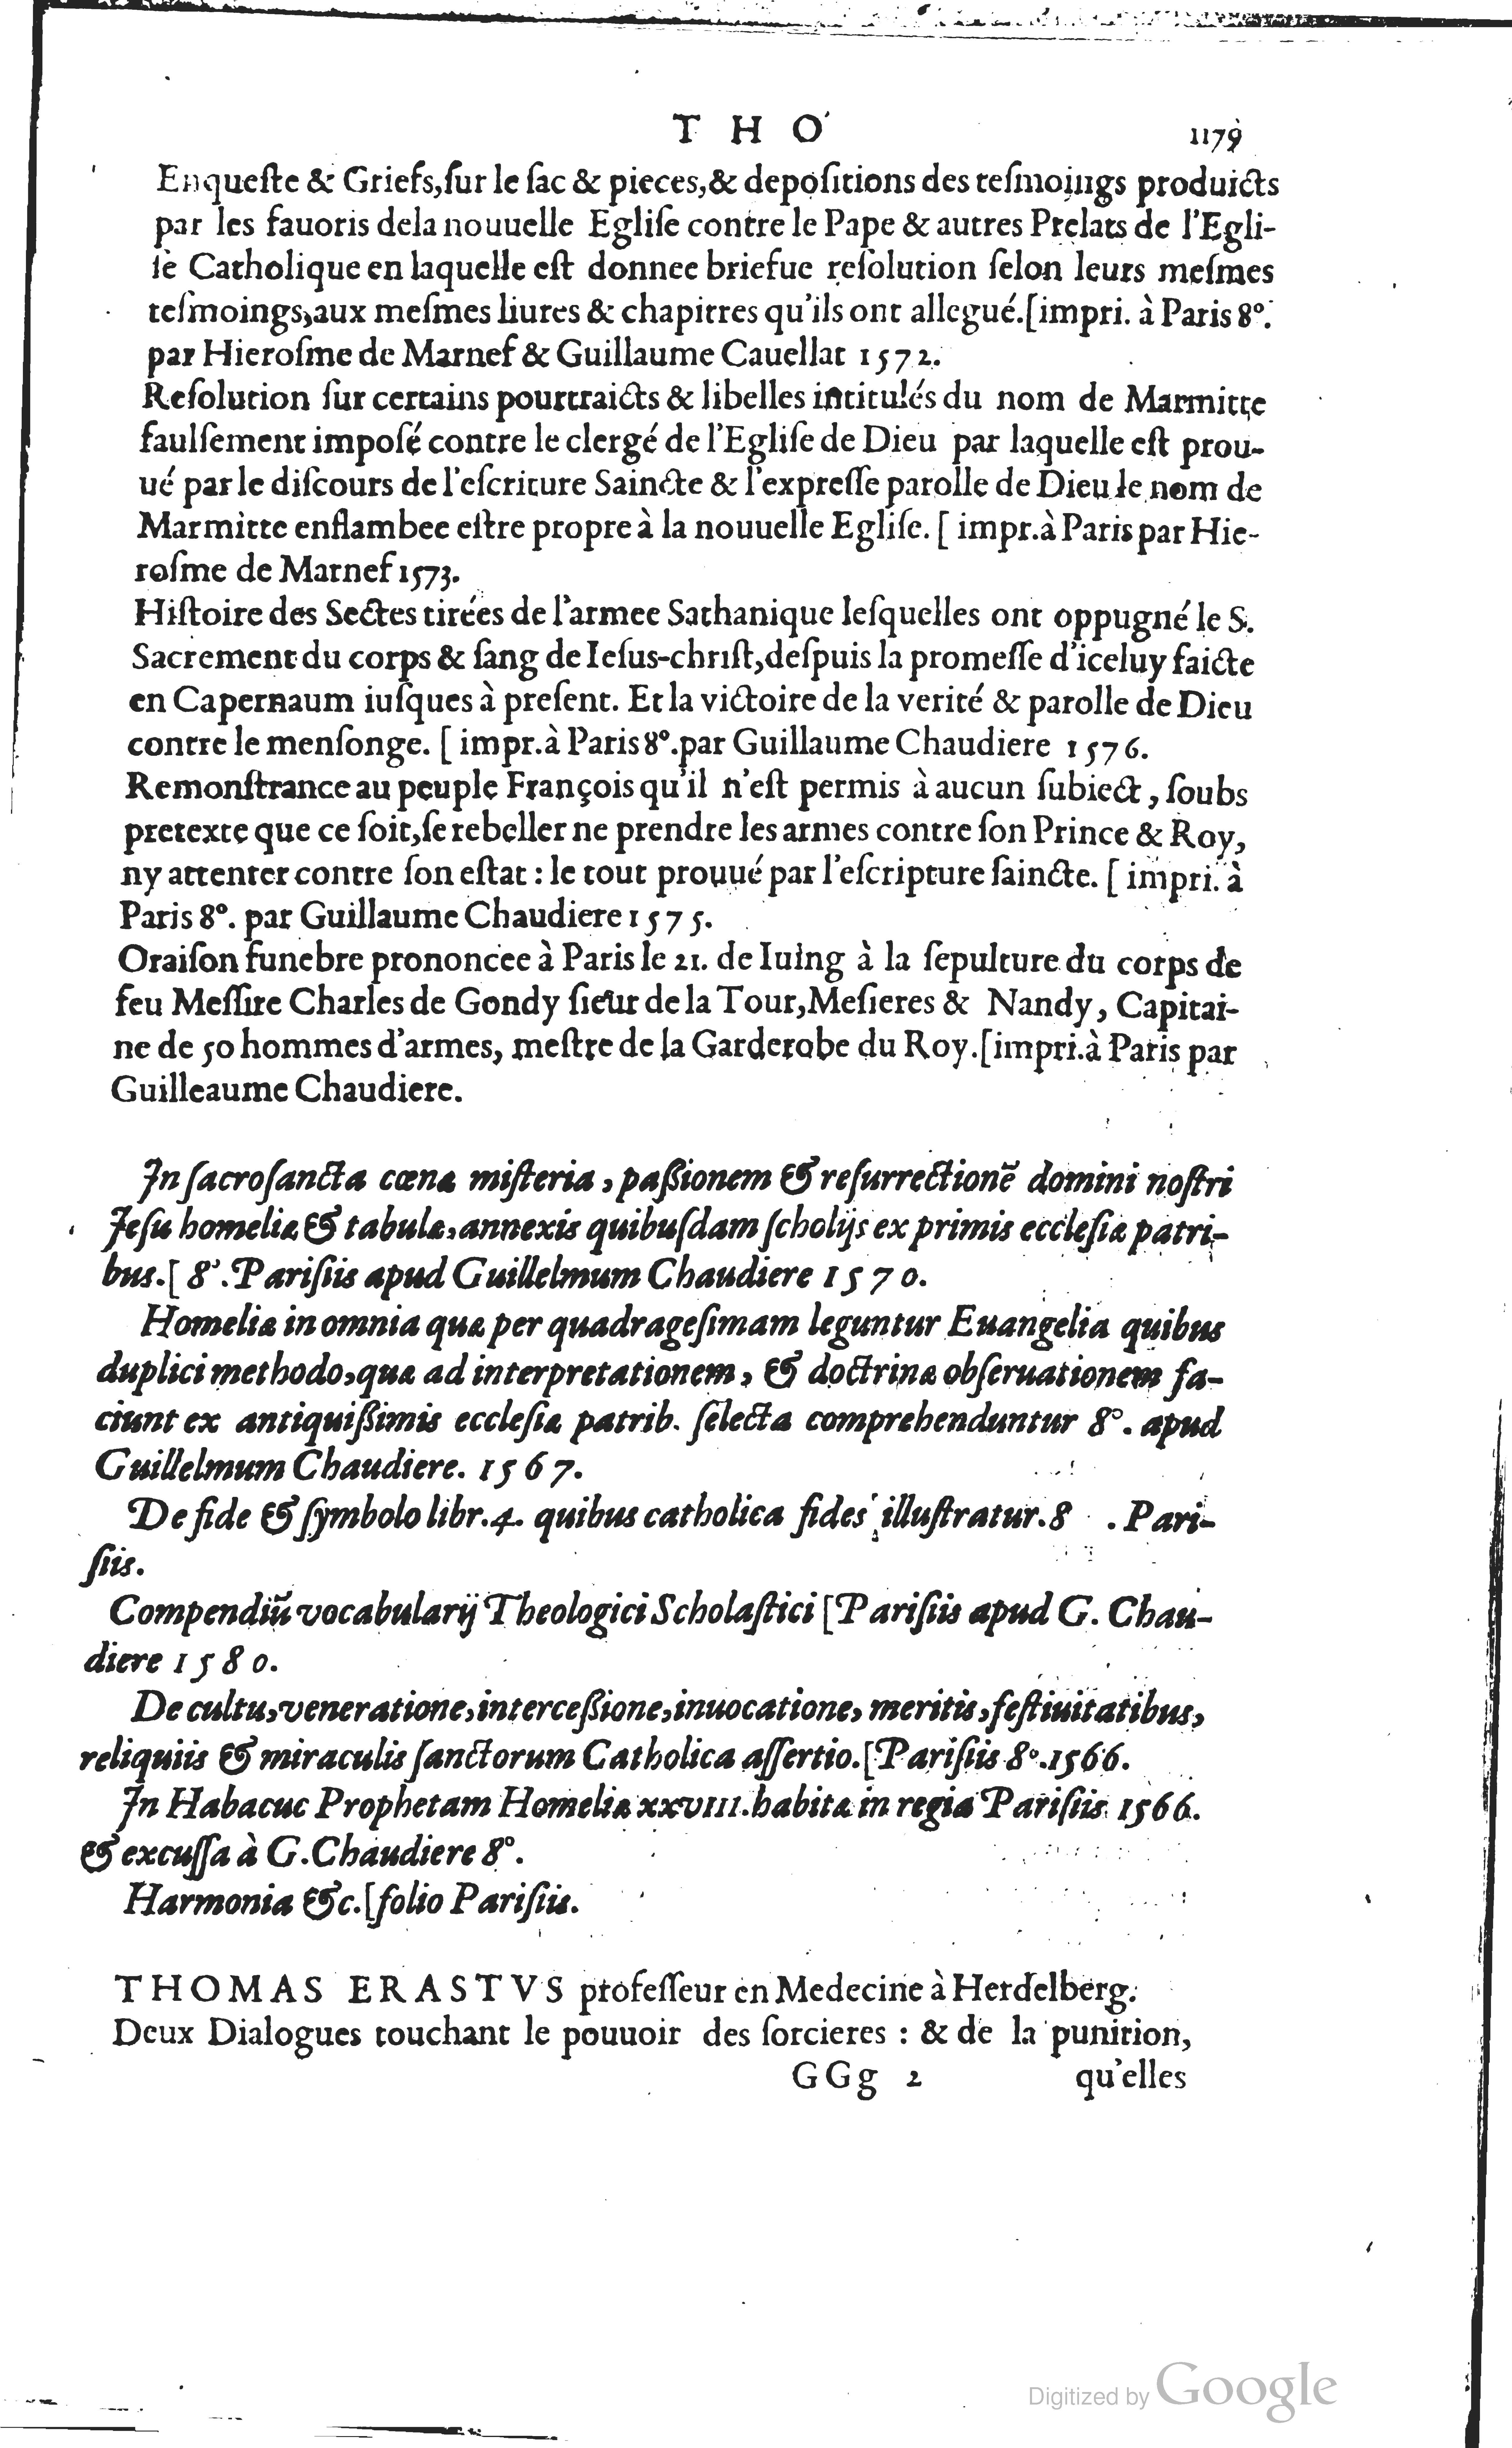 T H O
1179
Enqueſte & Griefs,ſur le ſac & pieces,& depoſitions des teſmoings produicts
par les fauoris dela nouuelle Egliſe contre le Pape & autres Prelats de l'Egli-
ſe Catholique en laquelle eſt donnee briefue reſolution ſelon leurs meſmes
teſmoings,aux meſmes liures & chapitres qu'ils ont allegué.[impri. à Paris 8°.
par Hieroſme de Marnef & Guillaume Cauellat 1572.
Reſolution ſur certains pourtraicts & libelles intitulés du nom de Marmitte
faulſement impoſé contre le clergé de l'Egliſe de Dieu par laquelle eſt prou-
ué par le diſcours de l'eſcriture Saincte & l'expreſſe parolle de Dieu le nom de
Marmitte enflambee eſtre propre à la nouuelle Egliſe. [ impr.à Paris par Hie-
roſme de Marnef 1573.
Hiſtoire des Sectes tirées de l'armee Sathanique leſquelles ont oppugné le S.
Sacrement du corps & ſang de Ieſus-chriſt,deſpuis la promeſſe d'iceluy faicte
en Capernaum iuſques à preſent. Et la victoire de la verité & parolle de Dieu
contre le menſonge. [ impr.à Paris 8°.par Guillaume Chaudiere 1576.
Remonſtrance au peuple François qu'il n'eſt permis à aucun ſubiect, ſoubs
pretexte que ce ſoit,ſe rebeller ne prendre les armes contre ſon Prince & Roy,
ny attenter contre ſon eſtat : le tout prouué par l'eſcripture ſaincte. [ impri. à
Paris 8°. par Guillaume Chaudiere 1575.
Oraiſon funebre prononcee à Paris le 21. de Iuing à la ſepulture du corps de
feu Meſſire Charles de Gondy ſieur de la Tour,Meſieres & Nandy, Capitai-
ne de 50 hommes d'armes, meſtre de la Garderobe du Roy.[impri.à Paris par
Guilleaume Chaudiere.
In ſacroſancta cœnæ miſteria, paſſionem & reſurrectionē domini noſtri
Jeſu homeliæ & tabulæ,annexis quibuſdam ſcholijs ex primis eccleſiæ patri-
bus.[ 8°. Pariſiis apud Guillelmum Chaudiere 1570.
Homeliæ in omnia quæ per quadrageſimam leguntur Euangelia quibus
duplici methodo,quæ ad interpretationem, & doctrinæ obſeruationem fa-
ciunt ex antiquiſſimis eccleſiæ patrib. ſelecta comprehenduntur 8°. apud
Guillelmum Chaudiere. 1567.
De fide & ſymbolo libr.4. quibus catholica fides illuſtratur.8 . Pari-
ſiis.
Compendiū vocabularij Theologici Scholaſtici [Pariſiis apud G. Chau-
diere 1580.
De cultu,veneratione,interceſſione,inuocatione, meritis,feſtiuitatibus,
reliquiis & miraculis ſanctorum Catholica aſſertio.[Pariſiis 8°.1566.
In Habacuc Prophetam Homeliæ xxviii.habitæ in regia Pariſiis 1566.
& excuſſa à G.Chaudiere 8°.
Harmonia &c.[folio Pariſiis.
THOMAS ERASTVS profeſſeur en Medecine à Herdelberg.
Deux Dialogues touchant le pouuoir des ſorcieres : & de la punition,
GGg 2
qu'elles
Digitized by Google